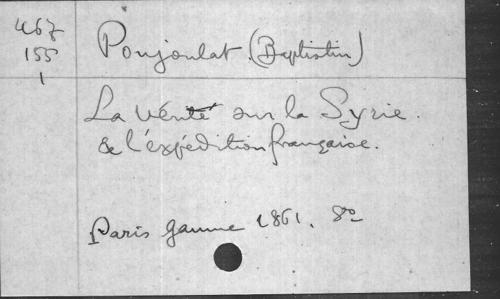 467
155
1
Poujoulat. (Baptistin)
La Vérité sur la Syrie.
& l'expédition française.
Paris Gaume 1861. 8º